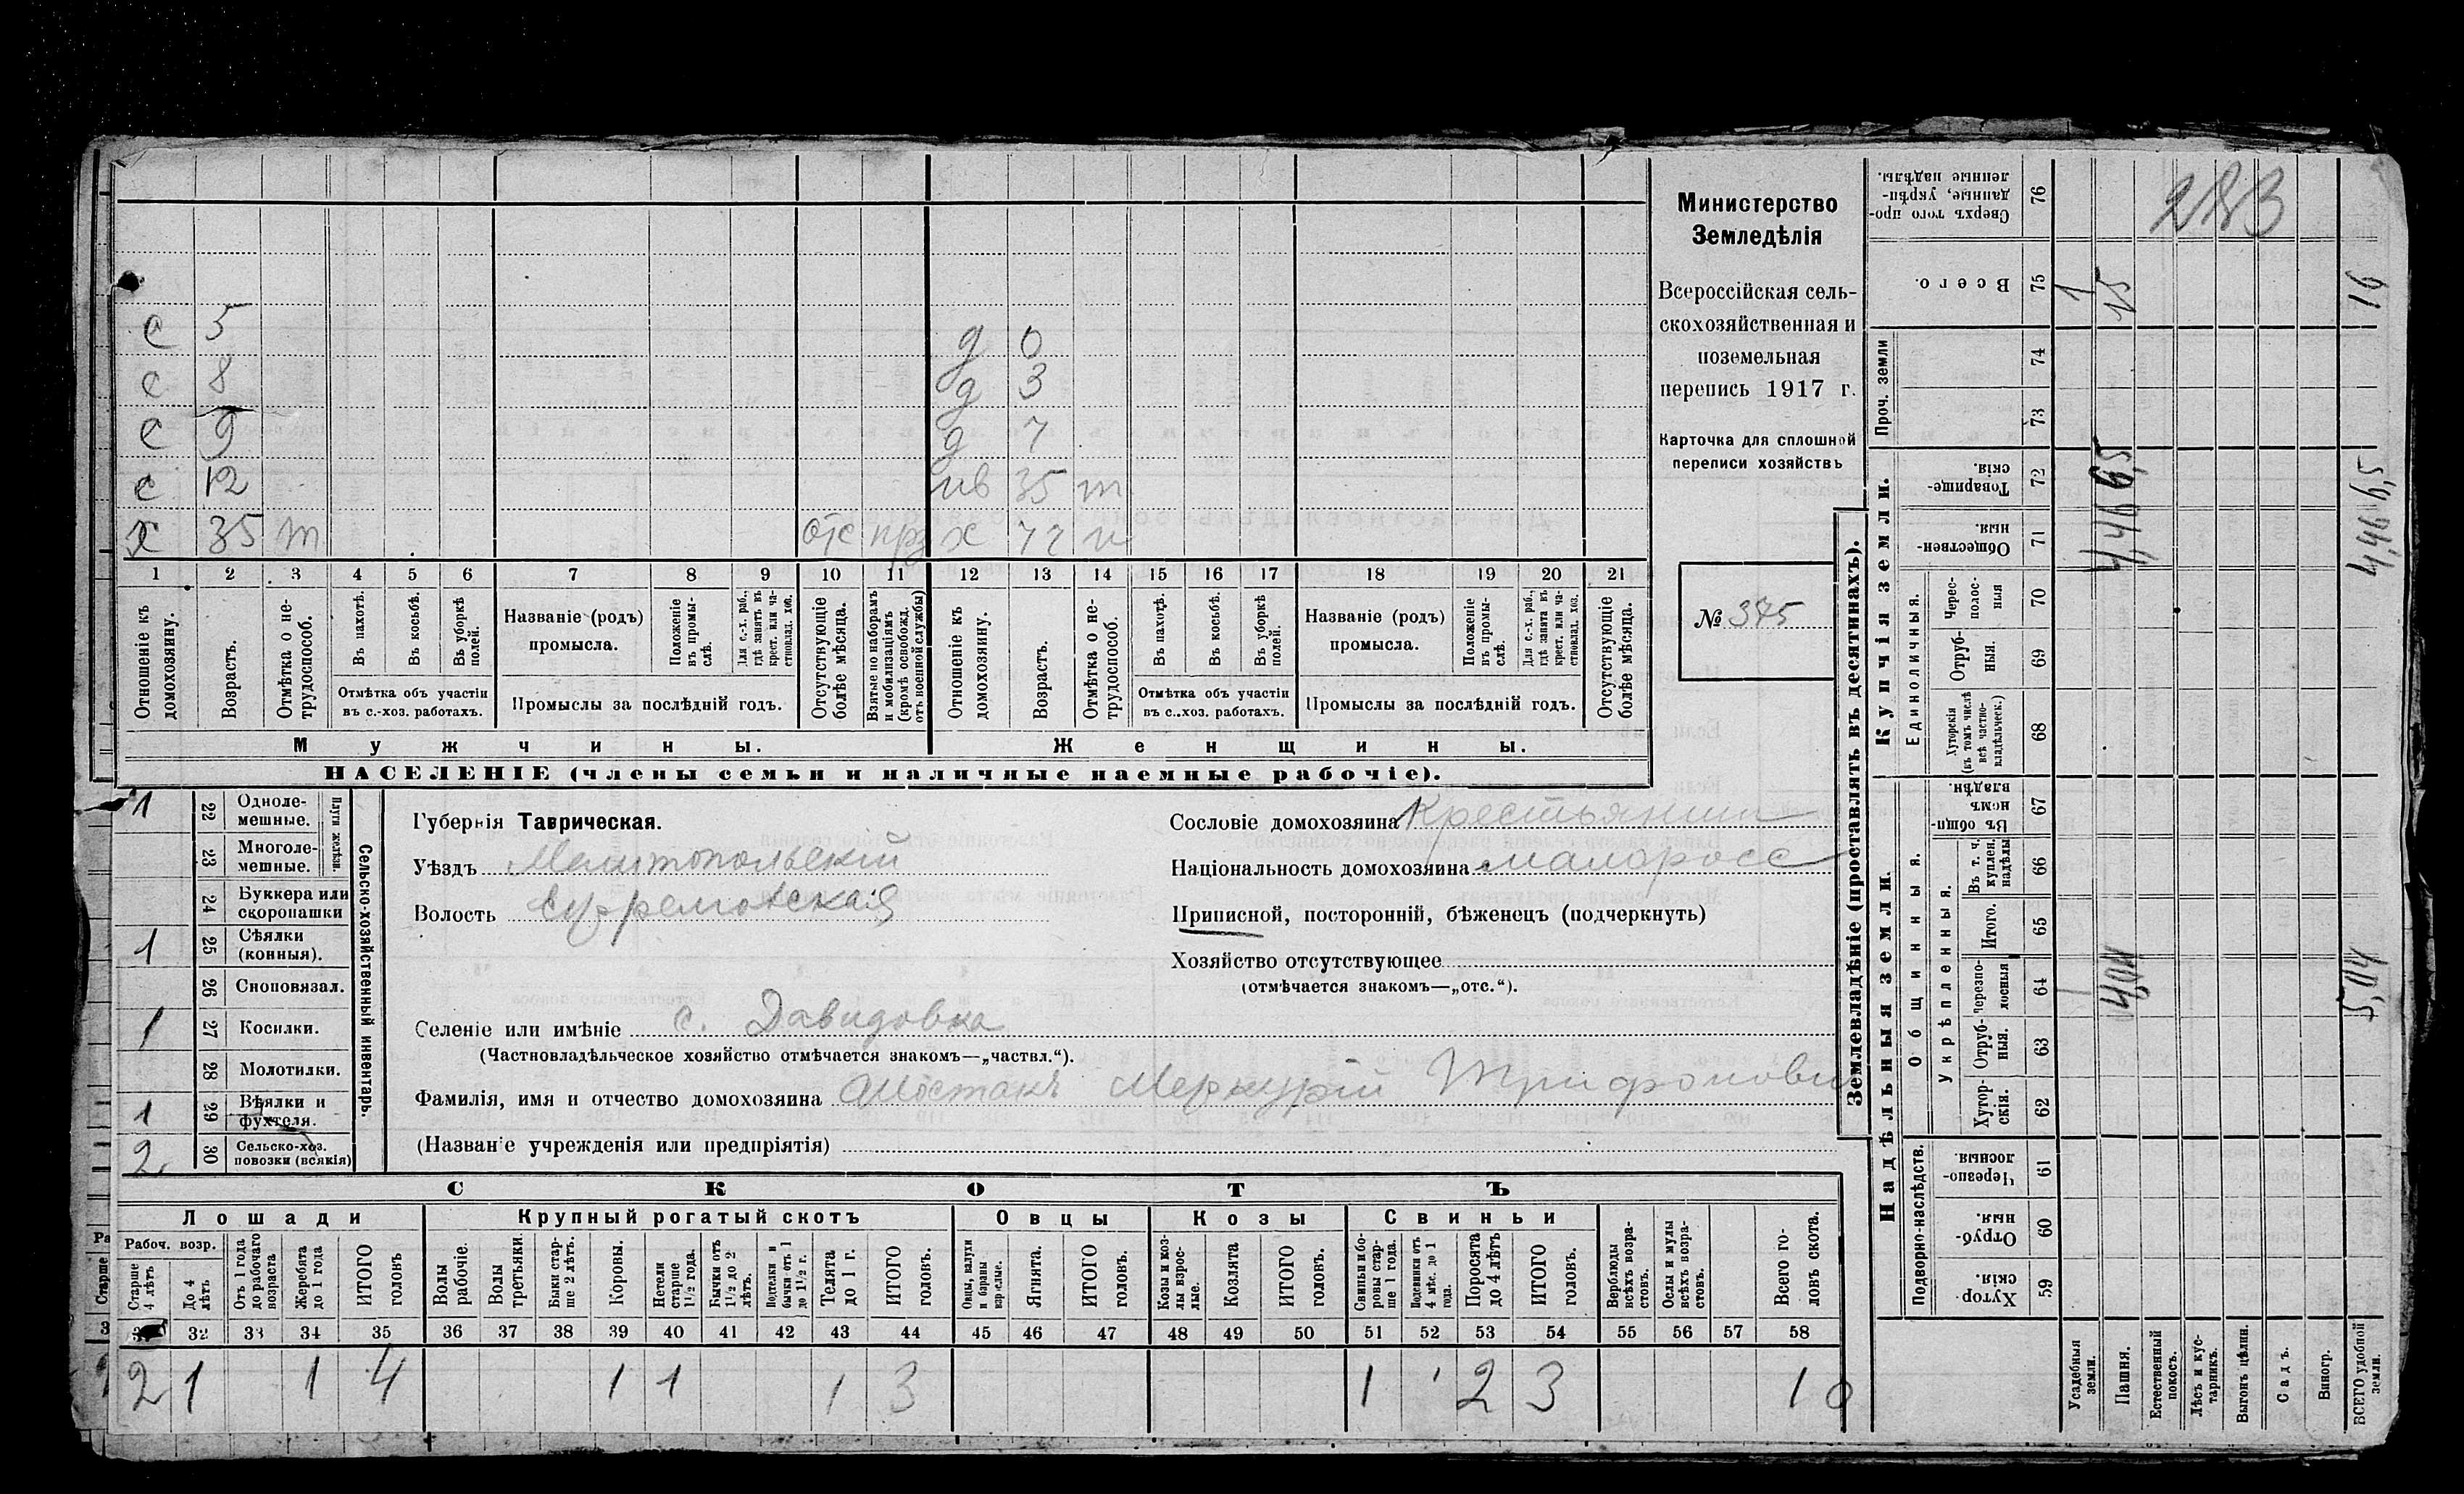 с 5
с 8
с 9
с 12
х 35 т отс прз
д 0
д 3
д 7
нв 35 т
х 72 н
1 2 3 4 5 6 7 8 9 10 11 12 13 14 15 16 17 18 19 20 21
Отношеніе къ домохозяину.
Возрастъ.
Отмѣтка о нетрудоспособ.
Въ пахотѣ.
Въ косьбѣ.
Въ уборкѣ полей.
Отмѣтка объ участіи въ с.-хоз. работахъ.
Названіе (родъ) промысла.
Положеніе въ промыслѣ.
Для с.-х. раб., гдѣ занятъ въ крест. или частновлад. хоз.
Промыслы за послѣдній годъ.
Отсутствующіе болѣе мѣсяца.
Взятые по наборамъ и мобилизаціямъ (кромѣ освобожд. отъ военной службы)
Отношеніе къ домохозяину.
Возрастъ.
Отмѣтка о нетрудоспособ.
Въ пахотѣ.
Въ косьбѣ.
Въ уборкѣ полей.
Отмѣтка объ участіи въ с..хоз. работахъ.
Названіе (родъ) промысла.
Положеніе въ промыслѣ.
Для с.-х. раб., гдѣ занята въ крест. или частновлад. хоз.
Промыслы за послѣдній годъ.
Отсутствующіе болѣе мѣсяца.
Мужчины.
Женщины.
НАСЕЛЕНІЕ (члены семьи и наличные наемные рабочіе).
Министерство
Земледѣлія
Всероссійская сель-
скохозяйственная и
поземельная
перепись 1917 г.
Карточка для сплошной
переписи хозяйствъ
№ 375
1 22 Одноле-мешные.
23 Многоле-мешные.
Плуги желѣзн.
24 Буккера или скоропашки
1 25 Сѣялки (конныя).
26 Сноповязал.
1 27 Косилки.
28 Молотилки.
1 29 Вѣялки и фухтеля.
2 30 Сельско-хоз. повозки (всякія)
Сельско-хозяйственный инвентарь.
Губернія Таврическая.
Уѣздъ Мелитопольскій
Волость Ефремовская
Селеніе или имѣніе с. Давидовка
(Частновладѣльческое хозяйство отмѣчается знакомъ—„частвл.“).
Фамилія, имя и отчество домохозяина Шостакъ Меркурій Трифонови
(Названіе учрежденія или предпріятія)
Сословіе домохозяина Крестьянин
Національность домохозяина малоросс
Приписной, посторонній, бѣженецъ (подчеркнуть)
Хозяйство отсутствующее
(отмѣчается знакомъ—„отс.“).
СКОТЪ
Лошади
Крупный рогатый скотъ
Овцы
Козы
Свиньи
Рабоч. возр.
Старше 4 лѣтъ
До 4 лѣтъ
Отъ 1 года до рабочаго возраста
Жеребята до 1 года
ИТОГО головъ
Волы рабочіе.
Волы третьяки.
Быки старше 2 лѣтъ.
Коровы.
Нетели старше 1½ года.
Бычки отъ 1½ до 2 лѣтъ.
Подтелки и бычки отъ 1 до 1½ г.
Телята до 1 г.
ИТОГО головъ.
Овцы, валухи и бараны взрослые.
Ягнята.
ИТОГО головъ.
Козы и козлы взрослые.
Козлята
ИТОГО головъ.
Свиньи и боровы старше 1 года.
Подсвинки отъ 4 мѣс. до 1 года.
Поросята до 4 лѣтъ
ИТОГО головъ.
Верблюды всѣхъ возрастовъ.
Ослы и мулы всѣхъ возрастовъ.
Всего головъ скота.
32 33 34 35 36 37 38 39 40 41 42 43 44 45 46 47 48 49 50 51 52 53 54 55 56 57 58
2 1 1 4 1 1 1 3 1 2 3 10
Землевладѣніе (проставлять въ десятинахъ).
Надѣльныя земли.
Купчія земли.
Проч. земли
Подворно-наслѣдств.
Общинныя.
Укрѣпленныя.
Единоличныя.
Хуторскія. 59
Отрубныя. 60
Черезполосныя. 61
Хуторскія. 62
Отрубныя. 63
Черезполосныя 64
Итого. 65
Въ т. ч. куплен. надѣлы 66
Въ общинномъ владѣн. 67
Хуторскія (въ томъ числѣ всѣ частновладѣльческ.) 68
Отрубныя. 69
Чересполосныя 70
Общественныя. 71
Товарищескія. 72
73
74
Всего. 75
Сверхъ того проданные, укрѣпленные надѣлы. 76
283
1 15 16
4,466,5 4,466,5
4,04 5,04
Усадебныя земли.
Пашня.
Естественный покосъ.
Лѣсъ и кустарникъ.
Выгонъ цѣлин.
Садъ.
Виногр.
ВСЕГО удобной земли.